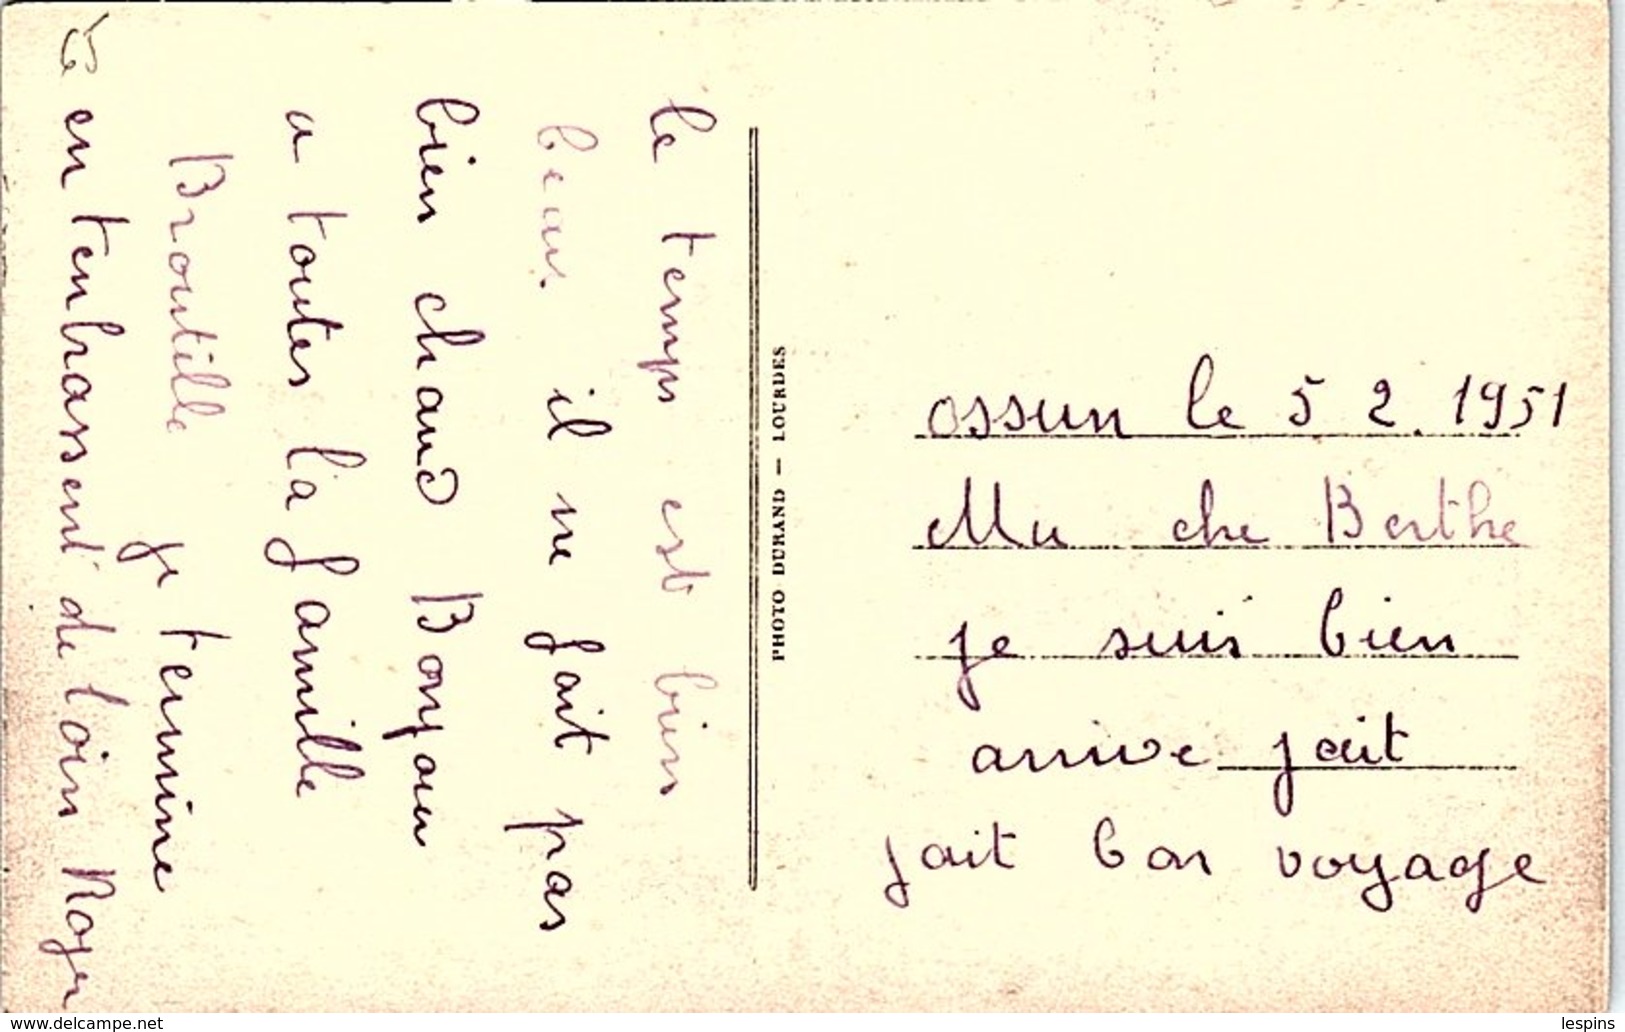 ossun le 5 2. 1951
Mu che Berthe
je suis bien
arrive jait
fait bon voyage
le temps est bien
beau. il ne fait pas
bien chaud Bonjour
a toutes la famille
Broutille je termine
en tenbrassent de loin Roger
PHOTO DURAND — LOURDES
www.delcampe.net
lespins